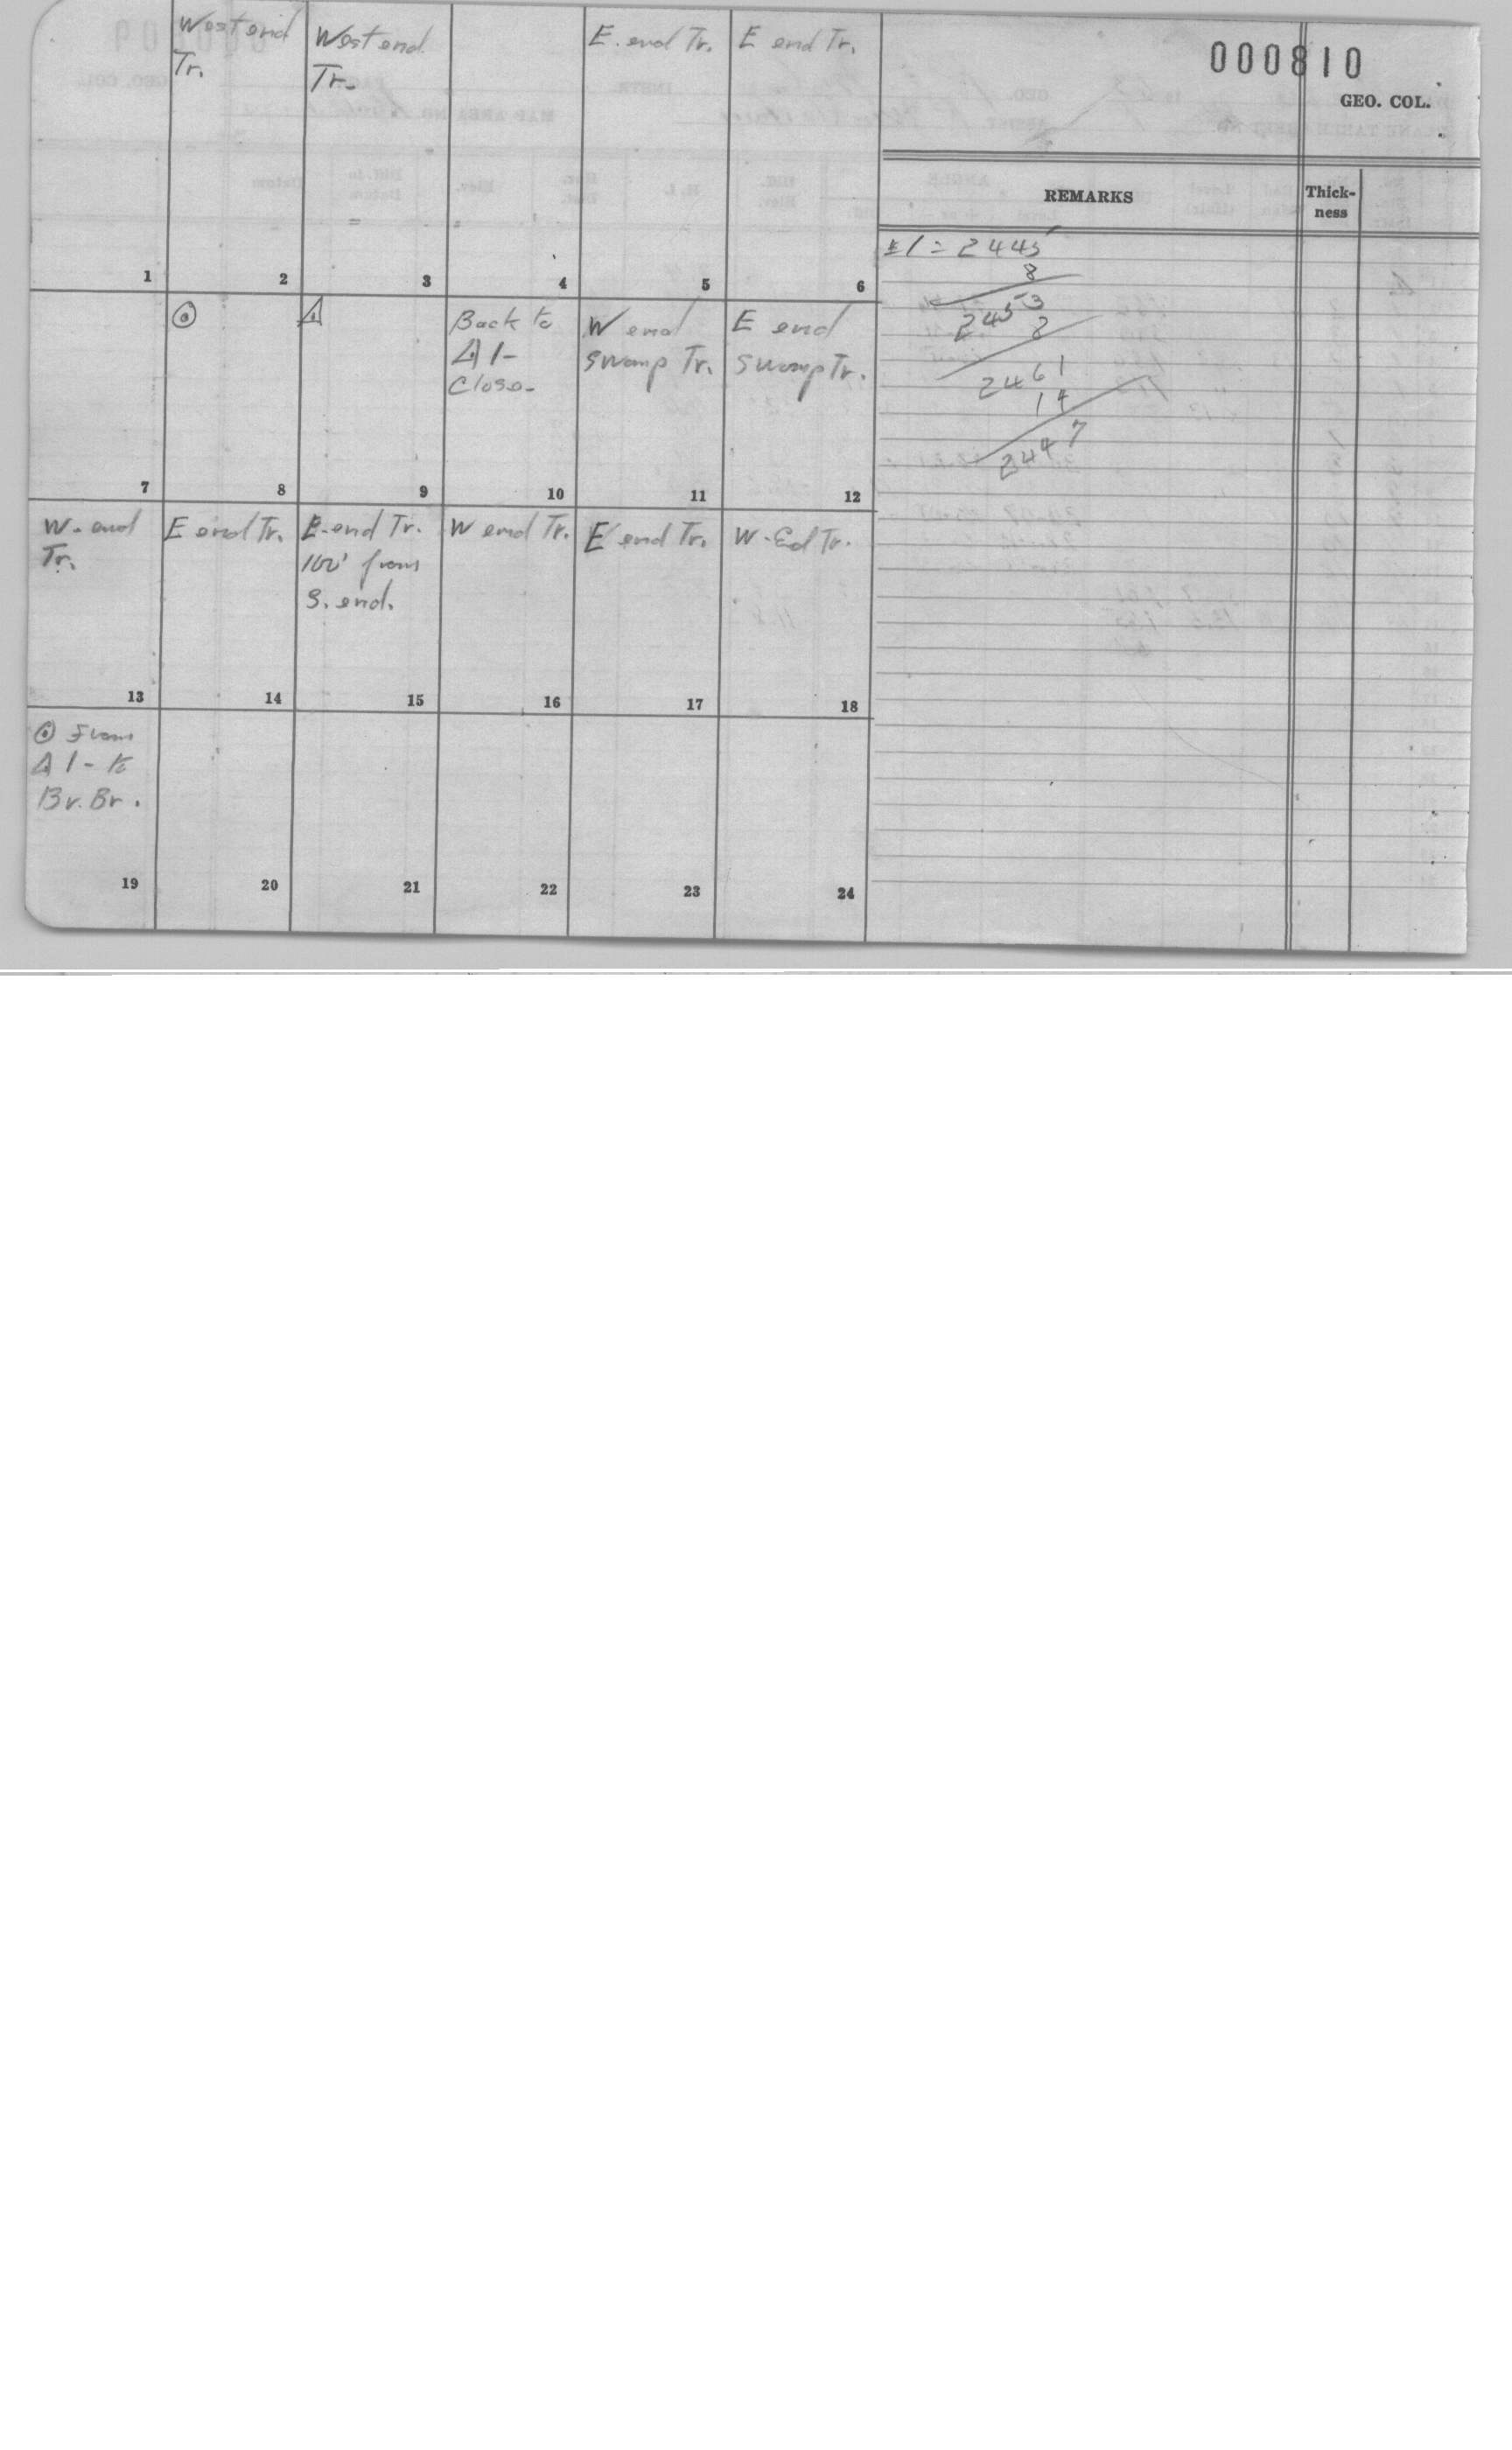 West end
Tr.
West end
Tr.
E. end Tr.
E end Tr.
000810
GEO. COL.
REMARKS
Thick-
ness
1
2
3
4
5
6
1 = 2445
8
2453
8
2461
14
2447
Back to
Δ 1-
Close-
W end
Swamp Tr.
E end
Swamp Tr.
7
8
9
10
11
12
W. end
Tr.
E end Tr.
E-end Tr.
100' from
S. end.
W end Tr.
E end Tr.
W-Ed Tr.
13
14
15
16
17
18
⊙ From
Δ 1 - to
Br. Br.
19
20
21
22
23
24